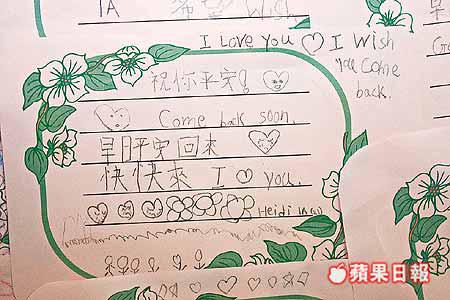 1A 希望 Wish
I Love you ♡ I Wish
you come
back.
祝你平安!
Come back soon.
早日平安回來
快快來 I ♡ you.
Heidi
蘋果日報